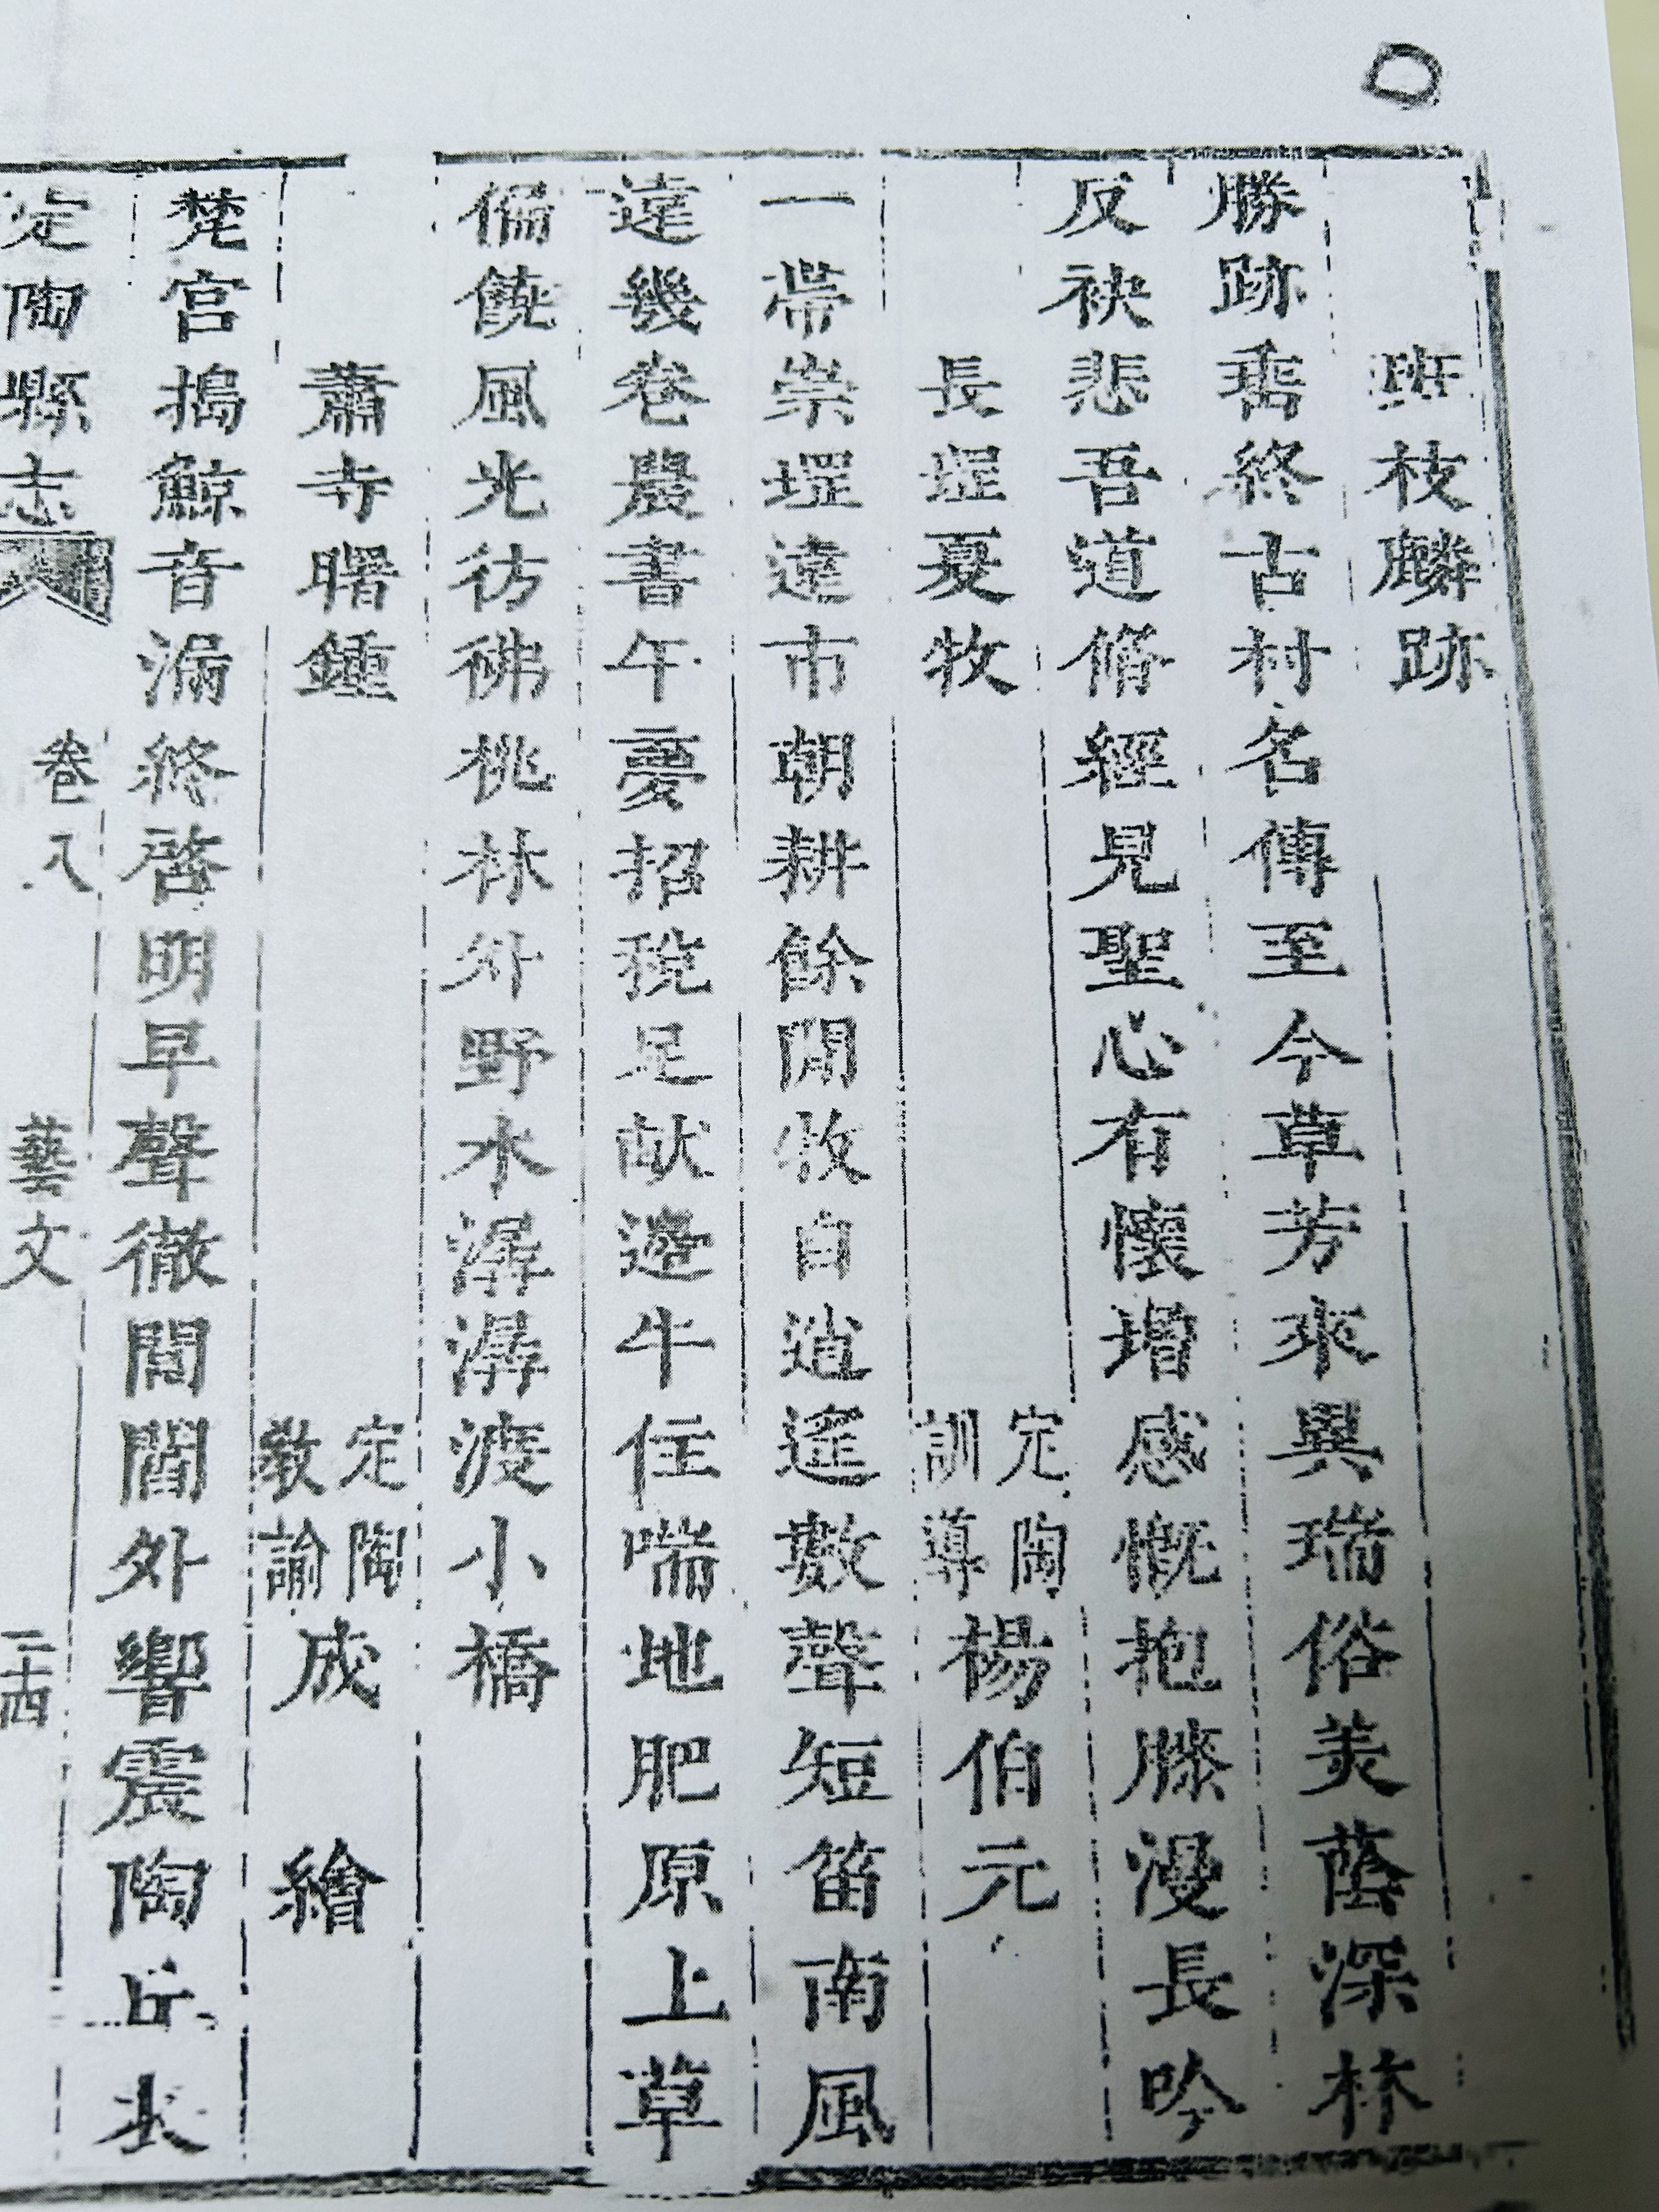 班枝麟跡
勝跡垂終古村名傳至今草芳來異瑞俗美蔭深林
反袂悲吾道脩經見聖心有懷增感慨抱膝漫長吟
長堽夏牧
定陶
訓導
楊伯元
一帶崇堽遠市朝耕餘閒牧自逍遙數聲短笛南風
遠幾卷農書午夢招稅足献邊牛住喘地肥原上草
偏饒風光彷彿桃林外野水潺潺渡小橋
蕭寺曙鍾
定陶
敎諭
成繪
梵宮搗鯨音漏終啓明早聲徹閶闔外響震陶丘
定陶縣志
卷八
藝文
二十四